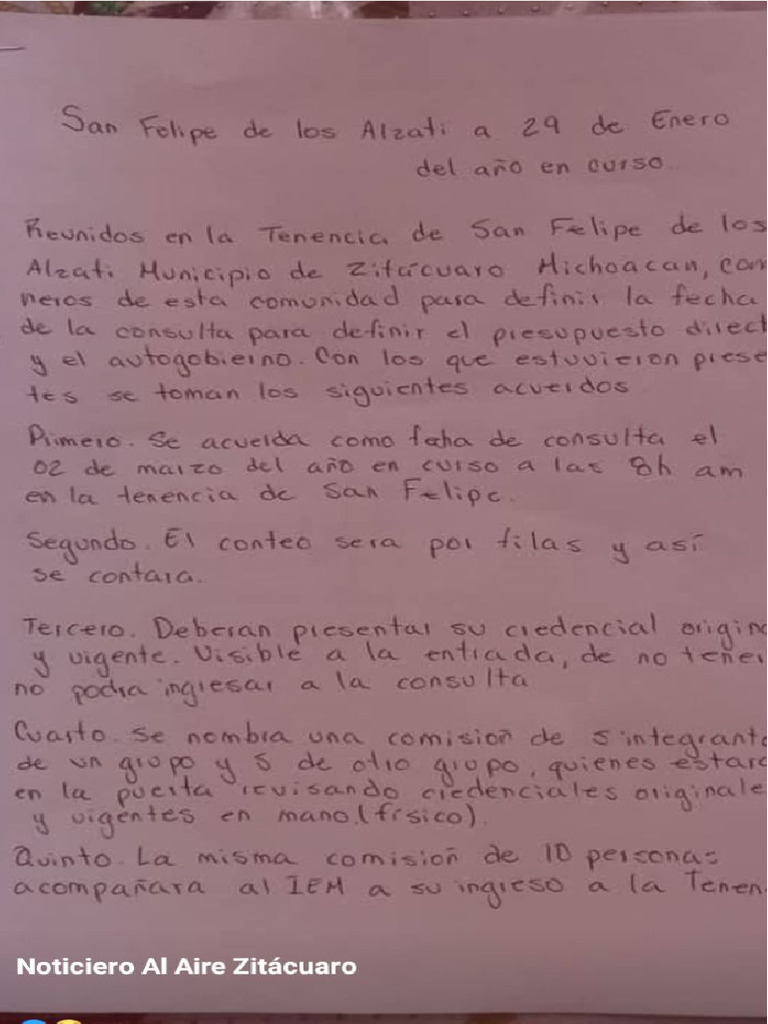 San Felipe de los Alzati a 29 de Enero
del año en curso.
Reunidos en la Tenencia de San Felipe de los
Alzati Municipio de Zitácuaro Michoacan, com
neros de esta comunidad para definir la fecha
de la consulta para definir el presupuesto direct
y el autogobierno. Con los que estuvieron prese
tes se toman los siguientes acuerdos
Primero. Se acuerda como fecha de consulta el
02 de marzo del año en curso a las 8h am
en la tenencia de San Felipe.
Segundo. El conteo sera por filas y así
se contara.
Tercero. Deberan presentar su credencial origina
y vigente. Visible a la entrada, de no tener
no podra ingresar a la consulta
Cuarto. Se nombra una comisión de 5 integrant
de un grupo y 5 de otro grupo, quienes estara
en la puerta revisando credenciales originale
y vigentes en mano.(físico).
Quinto. La misma comisión de 10 personas
acompañara al IEM a su ingreso a la Tenen
Noticiero Al Aire Zitácuaro